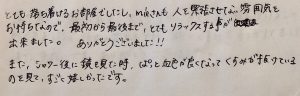 とても落ち着けるお部屋でしたし、miaさんも人を緊張させない雰囲気を
お持ちなので、最初から最後まで、とてもリラックスする事が
出来ました。 ありがとうございました!!
また、シャワー後に鏡を見た時、ぱっと血色が良くなってくすみが抜けている
のを見て、すごく嬉しかったです。